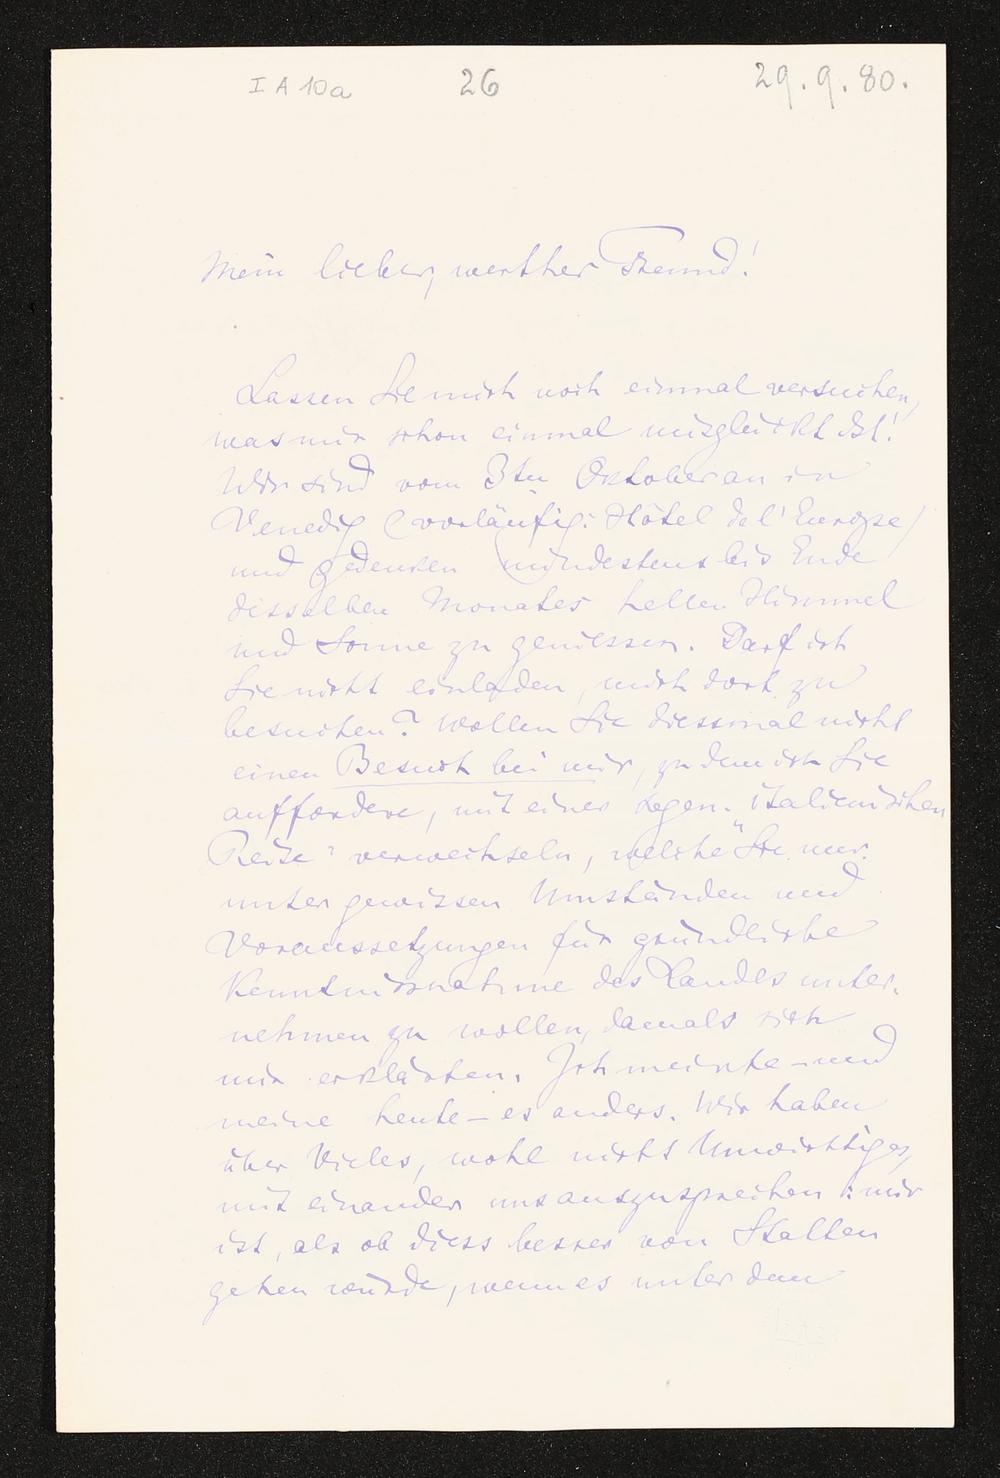 I A 10a 26 29. 9. 80.
Mein lieber, werther Freund!
Lassen Sie mich noch einmal versuchen,
was mir schon einmal misglückt ist!
Wir sind vom 3ten Oktober an in
Venedig (vorläufig: Hôtel de l'Europe)
und gedenken mindestens bis Ende
desselben Monates hellen Himmel
und Sonne zu geniessen. Darf ich
Sie nicht einladen, mich dort zu
besuchen? Wollen Sie diessmal nicht
einen Besuch bei mir, zu dem ich Sie
auffordere, mit einer „italienischen
Reise" verwechseln, welche Sie nur
unter gewissen Umständen und
Voraussetzungen für gründliche
Kenntnissnahme des Landes unter-
nehmen zu wollen, damals sich
mir erklärten. Ich meinte – und
meine heute – es anders. Wir haben
über Vieles, wohl nicht Unwichtiges,
mit einander uns auszusprechen: mir
ist, als ob diess besser von Statten
gehen würde, wenn es unter dem